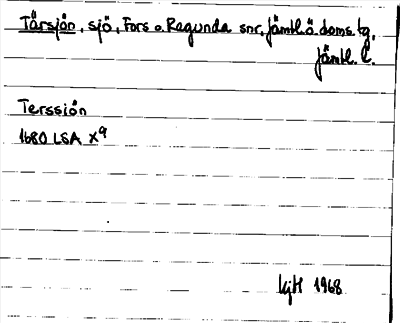 Tärsjön, sjö, Fors o. Ragunda snr, Jämtl.ö. doms.tg,
Jämtl. l.
Terssiön
1680 LSA X9
KjH 1968